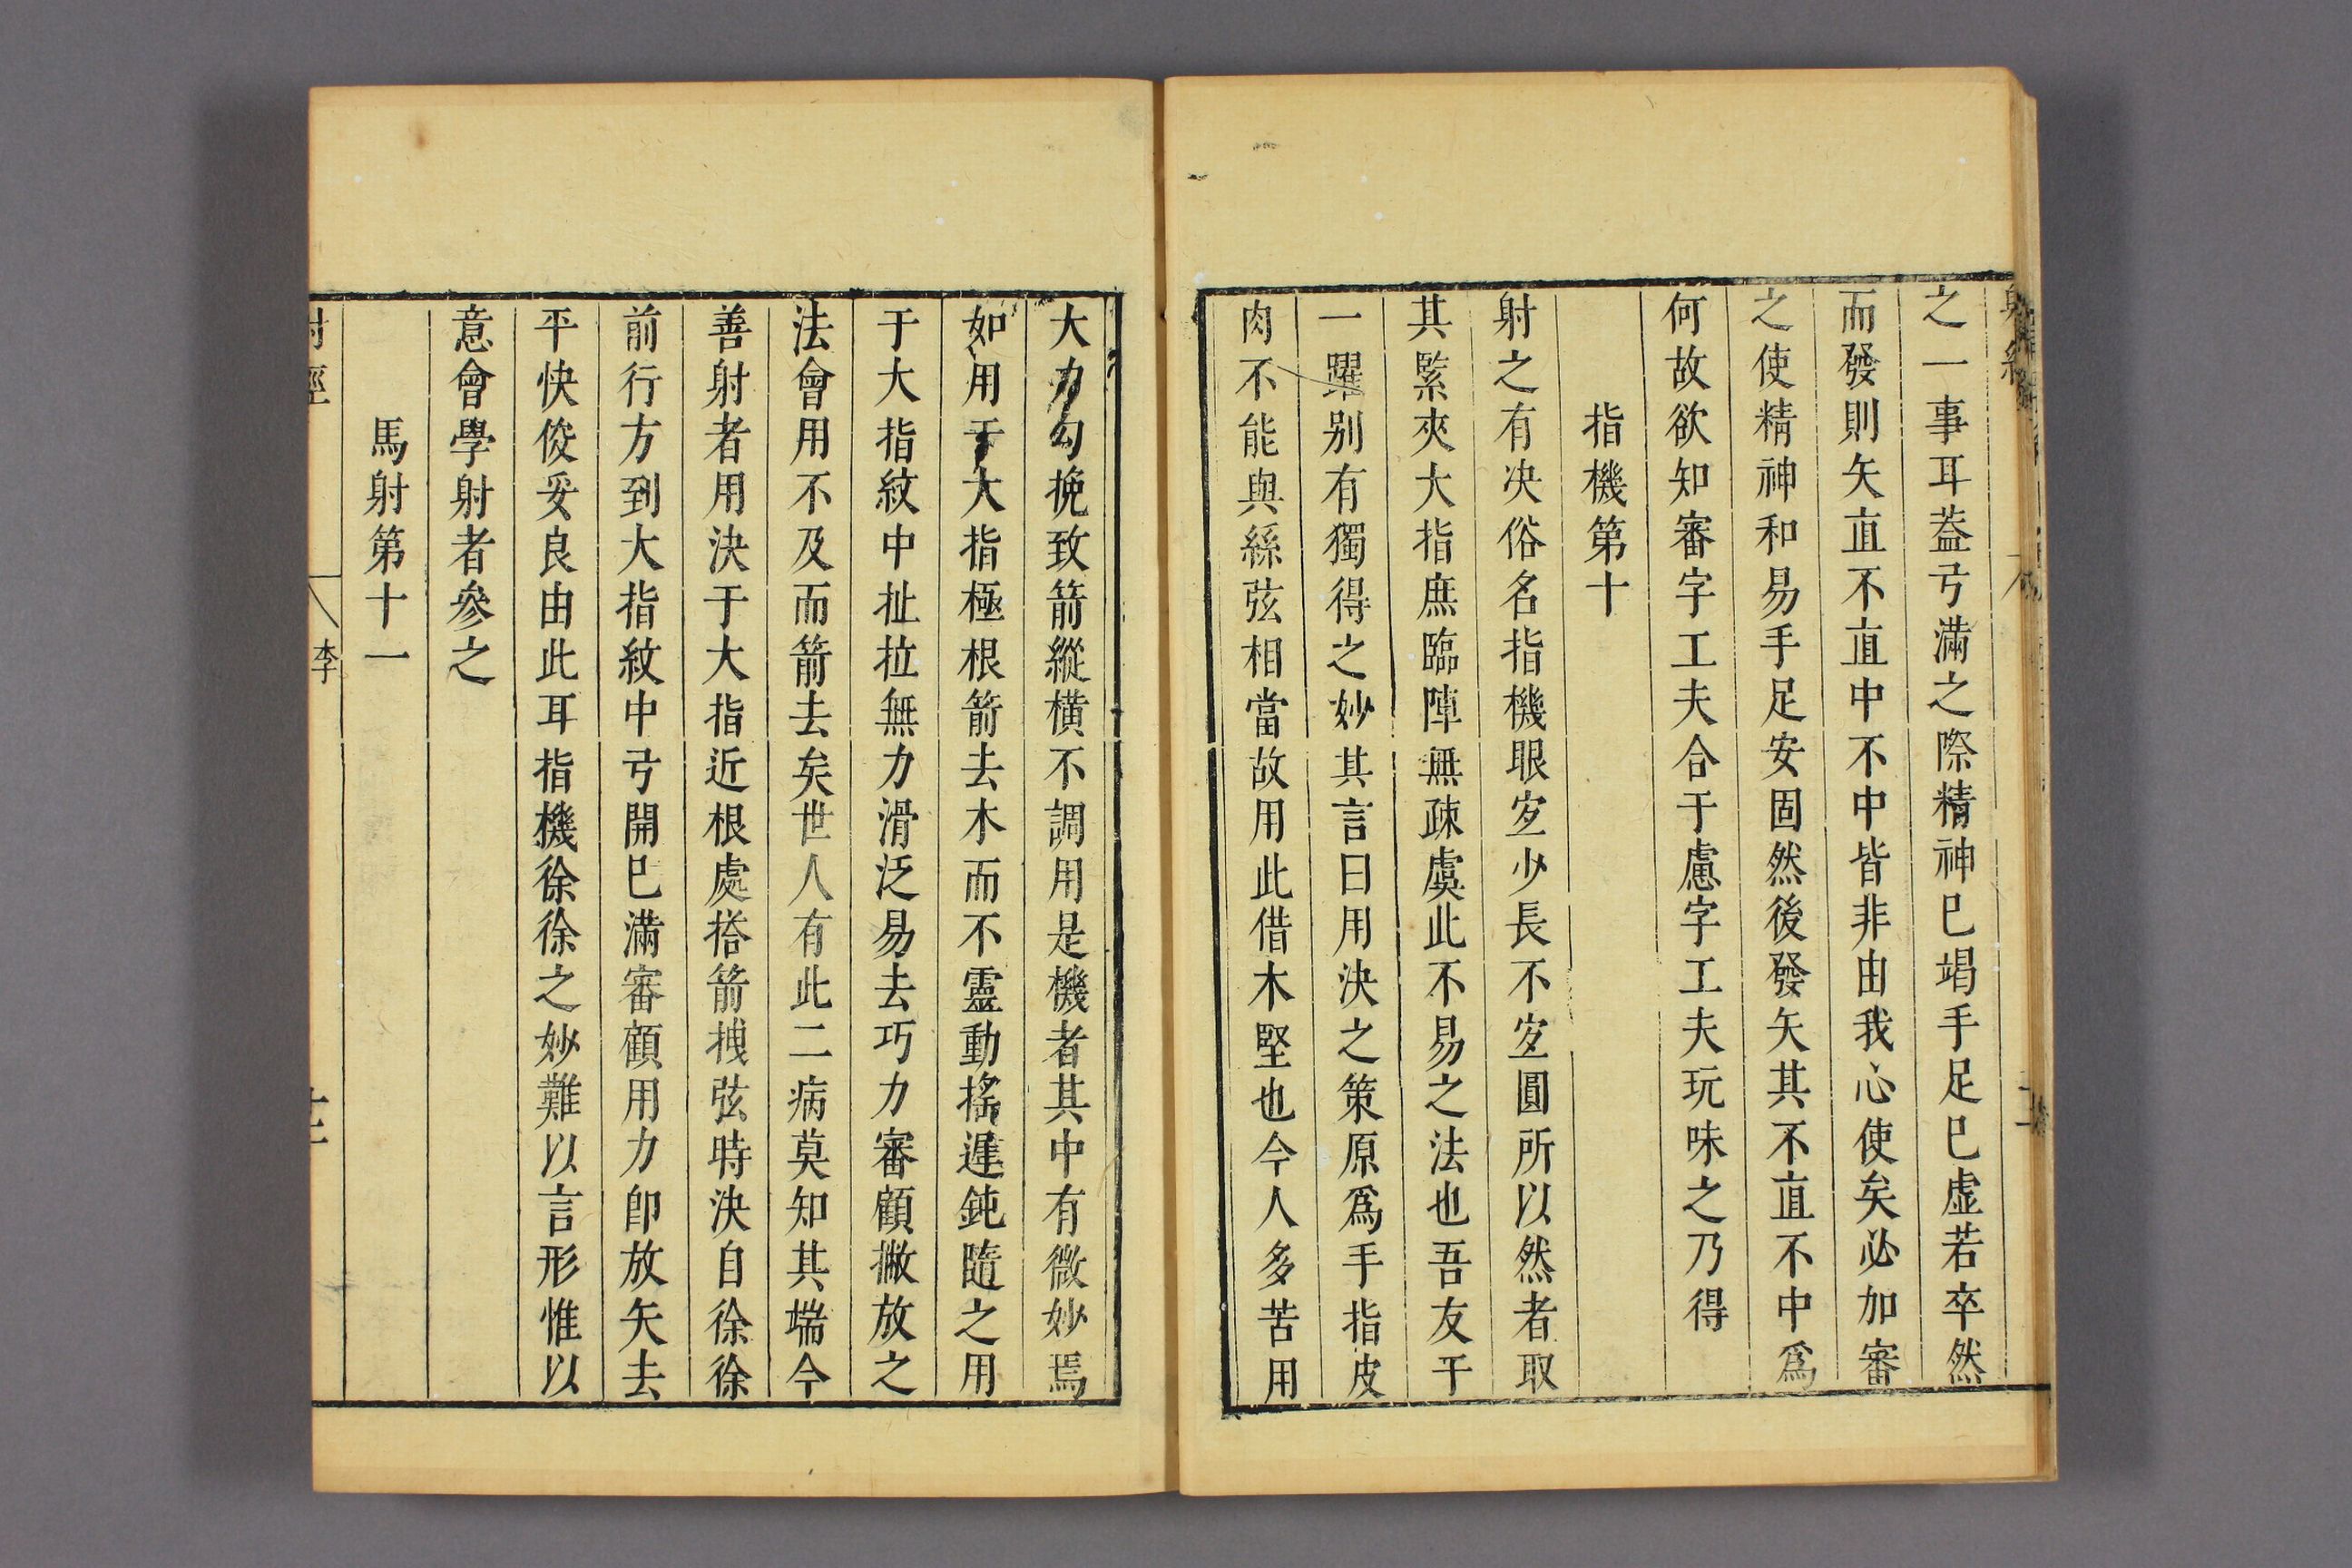 之一事耳葢弓滿之際精神巳竭手足巳虚若卒然
而發則矢直不直中不中皆非由我心使矣必加審
之使精神和易手足安固然後發矢其不直不中爲
何故欲知審字工夫合于慮字工夫玩味之乃得
指機第十
射之有决俗名指機眼宜少長不宜圓所以然者取
其緊夾大指庶臨陣無疎虞此不易之法也吾友于
一躍别有獨得之妙其言曰用決之策原爲手指皮
肉不能與絲弦相當故用此借木堅也今人多苦用
大力勾挽致箭縱横不調用是機者其中有微妙焉
如用于大指極根箭去木而不靈動搖遲鈍隨之用
于大指紋中扯拉無力滑泛易去巧力審顧撇放之
法會用不及而箭去矣世人有此二病莫知其端今
善射者用決于大指近根處搭箭拽弦時決自徐徐
前行方到大指紋中弓開巳滿審顧用力卽放矢去
平快俊妥良由此耳指機徐徐之妙難以言形惟以
意會學射者參之
馬射第十一
射經
李
十二